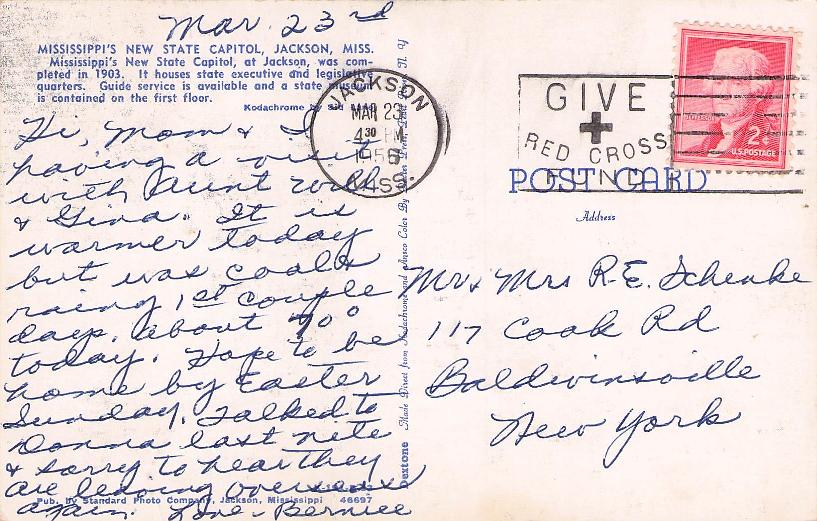 Mar. 23rd
MISSISSIPPI'S NEW STATE CAPITOL, JACKSON, MISS.
Mississippi's New State Capitol, at Jackson, was com-
pleted in 1903. It houses state executive and legislative
quarters. Guide service is available and a state museum
is contained on the first floor.
Kodachrome by
Hi, Mom & I
having a visit
with Aunt Ruth
& Gina. It is
warmer today
but was cool &
rainy 1st couple
days. about 70°
today. Hope to be
home by Easter
Sunday. Talked to
Donna last nite
& sorry to hear they
are leaving overseas
again. Love - Bernice
Pub. by Standard Photo Company, Jackson, Mississippi 46697
Dextone Made Direct from Kodachrome and Ansco Color By
JACKSON
MAR 23
4 30 PM
MISS.
GIVE
RED CROSS
FUND
2¢
U.S. POSTAGE
POST CARD
Address
Mr & Mrs R.E. Schenke
117 Cook Rd
Baldwinsville
New York